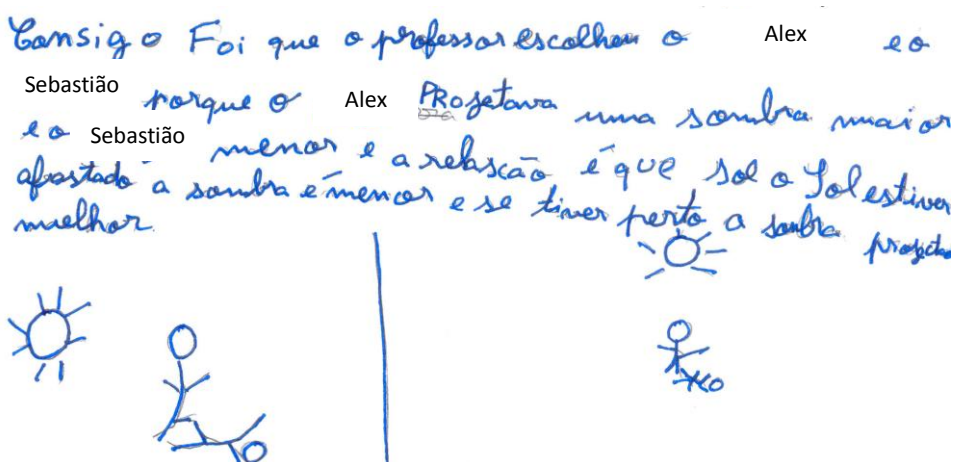 Consigo Foi que o professor escolheu o Alex e o
Sebastião porque o Alex PRojetava uma sombra maior
e o Sebastião menor e a relasção é que sol o Sol estiver
afastado a sombra é menor e se tiver perto a sonbra projecta
muelhor.